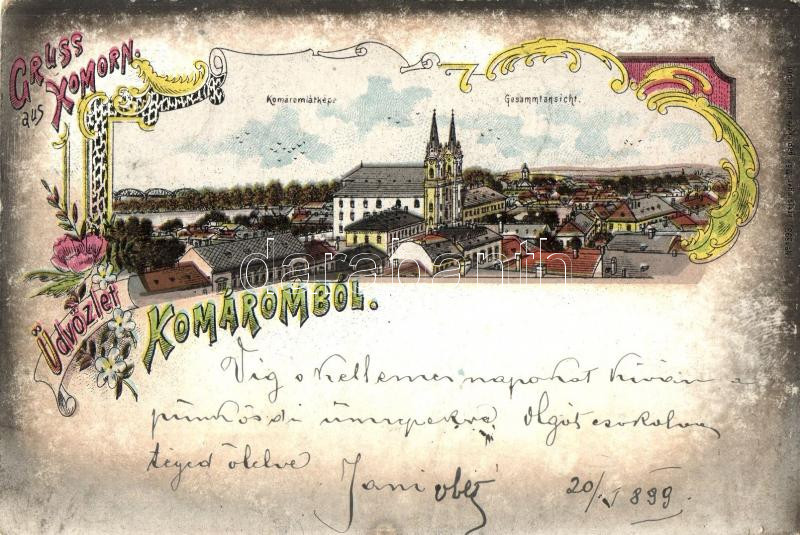 Gruss
aus Komorn.
Komáromlátképe
Gesammtansicht.
darabanth
Üdvözlet
Komáromból.
Víg s kellemes napokat kíván a
pünkösdi ünnepekre Olgát csokolva
téged ölelve Jani
20/V 899.